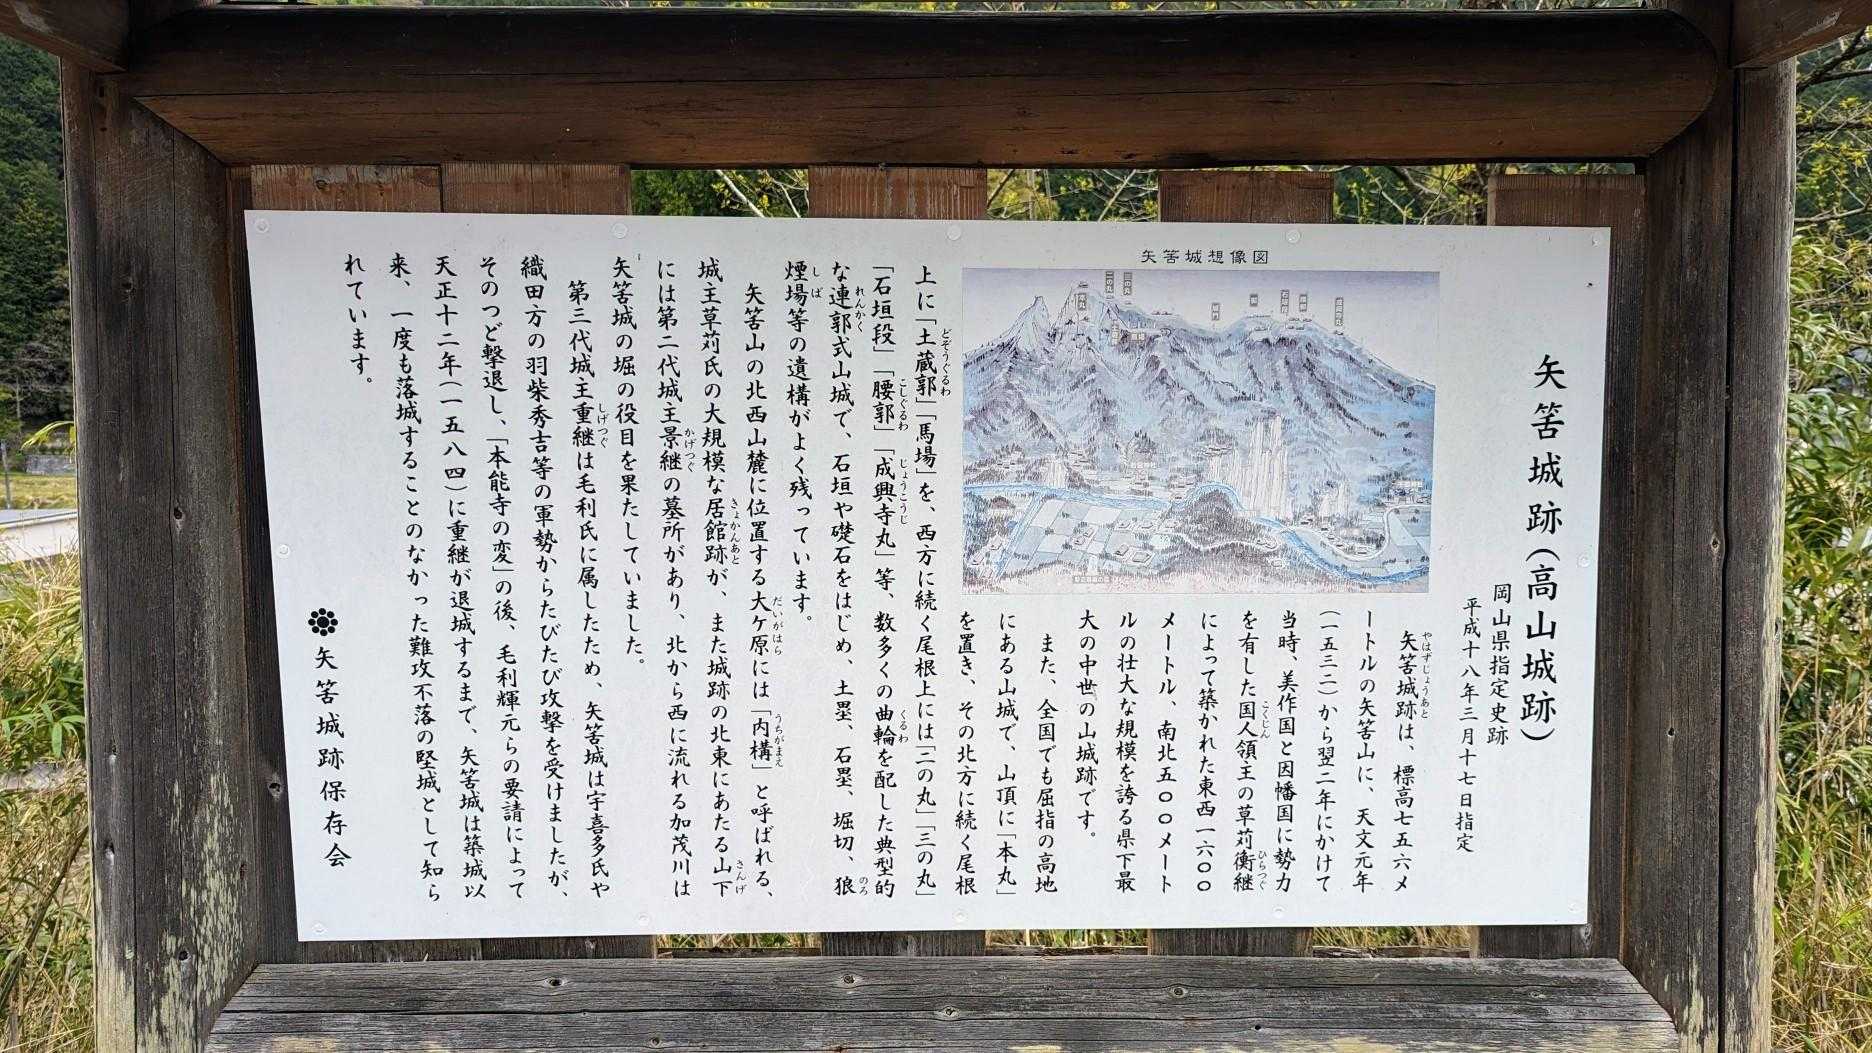 矢筈城跡(高山城跡)
岡山県指定史跡
平成十八年三月十七日指定
矢筈城想像図
矢筈城跡は、標高七五六メ
やはずじょうあと
ートルの矢筈山に、天文元年
(一五三二)から翌二年にかけて
当時、美作国と因幡国に勢力
を有した国人領主の草苅衡継
こくじん
ひらつぐ
によって築かれた東西一六〇〇
メートル、南北五〇〇メート
ルの壮大な規模を誇る県下最
大の中世の山城跡です。
また、全国でも屈指の高地
にある山城で、山頂に「本丸」
を置き、その北方に続く尾根
上に「土蔵郭」「馬場」を、西方に続く尾根上には「二の丸」「三の丸」
どぞうぐるわ
「石垣段」「腰郭」「成興寺丸」等、数多くの曲輪を配した典型的
こしぐるわ
じょうこうじ
くるわ
な連郭式山城で、石垣や礎石をはじめ、土塁、石塁、堀切、狼
れんかく
のろ
煙場等の遺構がよく残っています。
しば
矢筈山の北西山麓に位置する大ケ原には「内構」と呼ばれる、
だいがはら
うちがまえ
城主草苅氏の大規模な居館跡が、また城跡の北東にあたる山下
きょかんあと
さんげ
には第二代城主景継の墓所があり、北から西に流れる加茂川は
かげつぐ
矢筈城の堀の役目を果たしていました。
第三代城主重継は毛利氏に属したため、矢筈城は宇喜多氏や
しげつぐ
織田方の羽柴秀吉等の軍勢からたびたび攻撃を受けましたが、
そのつど撃退し、「本能寺の変」の後、毛利輝元らの要請によって
天正十二年(一五八四)に重継が退城するまで、矢筈城は築城以
来、一度も落城することのなかった難攻不落の堅城として知ら
れています。
矢筈城跡保存会
本丸
二の丸
三の丸
馬場